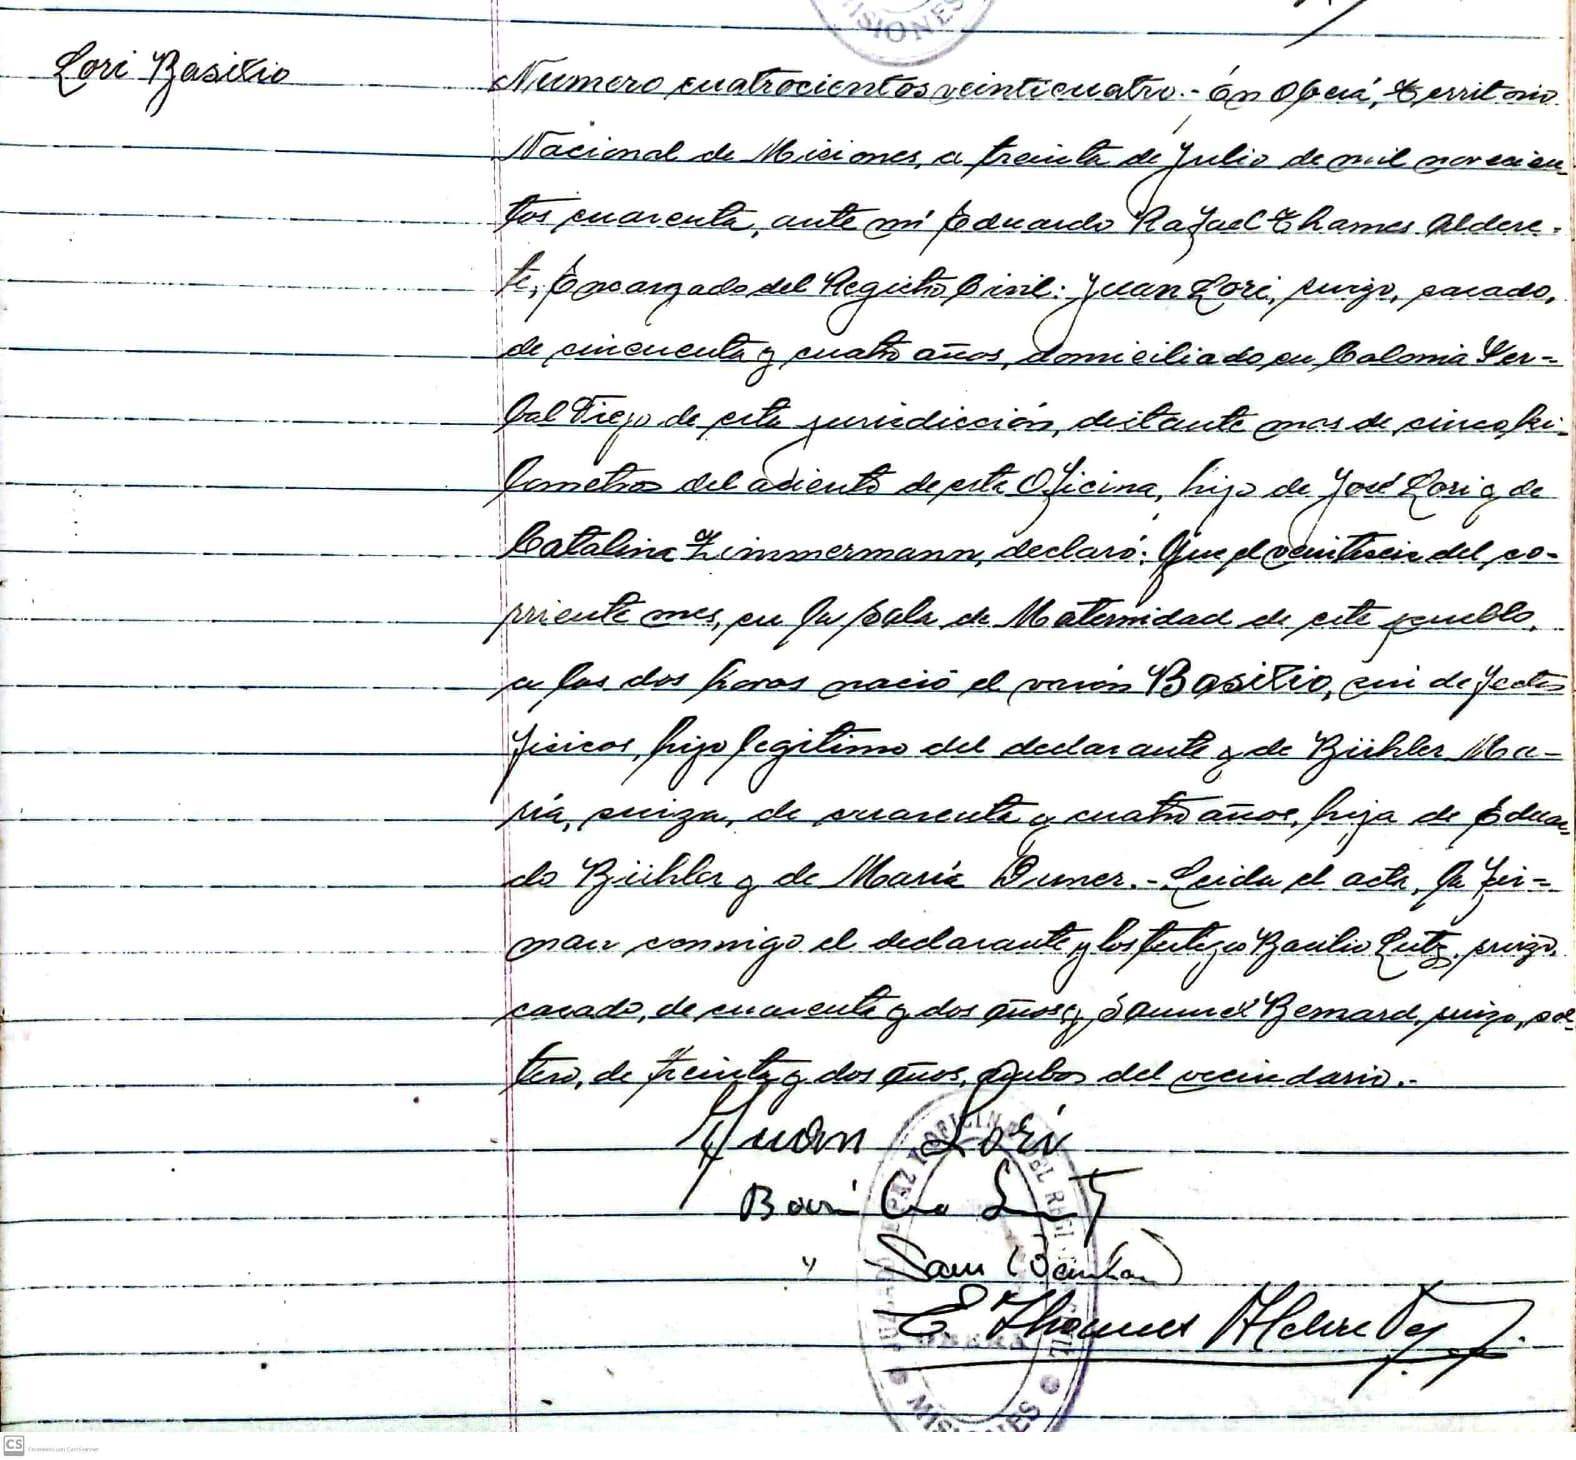 MISIONES
Lori Basilio
Numero cuatrocientos veinticuatro.- En Oberá, Territorio
Nacional de Misiones, a treinta de Julio de mil novecien-
tos cuarenta, ante mí Eduardo Rafael Thames Aldere-
te, Encargado del Registro Civil: Juan Lori, suizo, casado,
de cincuenta y cuatro años, domiciliado en Colonia Yer-
bal Viejo de esta jurisdicción, distante mas de cinco ki-
lometros del asiento de esta Oficina, hijo de José Lori y de
Catalina Zimmermann, declaró: Que el veintiseis del co-
rriente mes, en la Sala de Maternidad de este pueblo,
a las dos horas nació el varón Basilio, sin defectos
físicos, hijo legítimo del declarante y de Bühler Ma-
ría, suiza, de cuarenta y cuatro años, hija de Eduar-
do Bühler y de María Duner.- Leida el acta, la fir-
man conmigo el declarante y los testigos Basilio Lutz, suizo,
casado, de cuarenta y dos años y Samuel Bernard, suizo, sol-
tero, de treinta y dos años, ambos del vecindario.-
Juan Lori
Basilio Lutz
" Sam
E Thames Alderete
PAZ Y OFICINA DEL REGI
MISIONES
CS